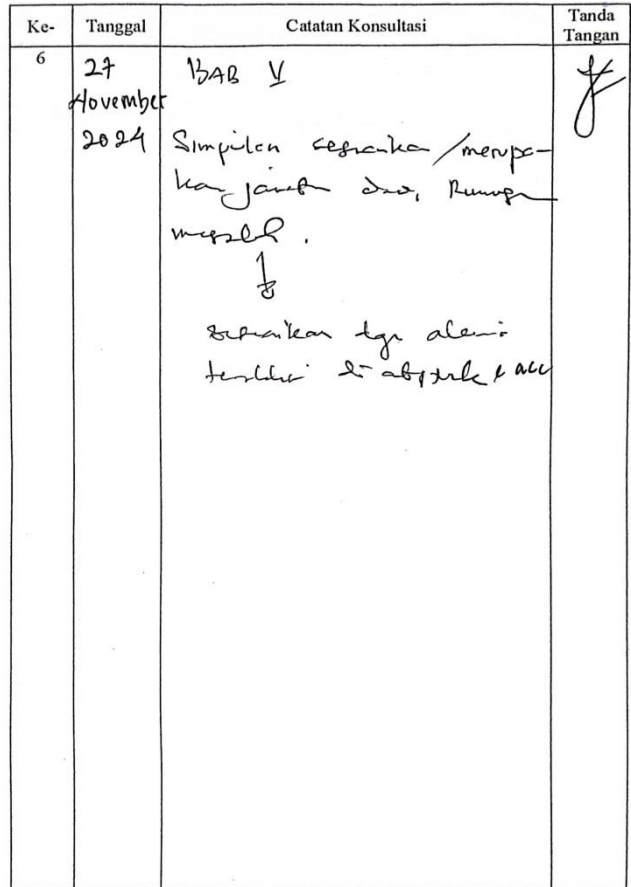 Ke- Tanggal Catatan Konsultasi Tanda Tangan
6 27 November 2024
BAB V
Simpulan sesuaikan / merupa-
kan jawaban dari Rumusan
masalah.
sesuaikan dgn
di abstrak & acc